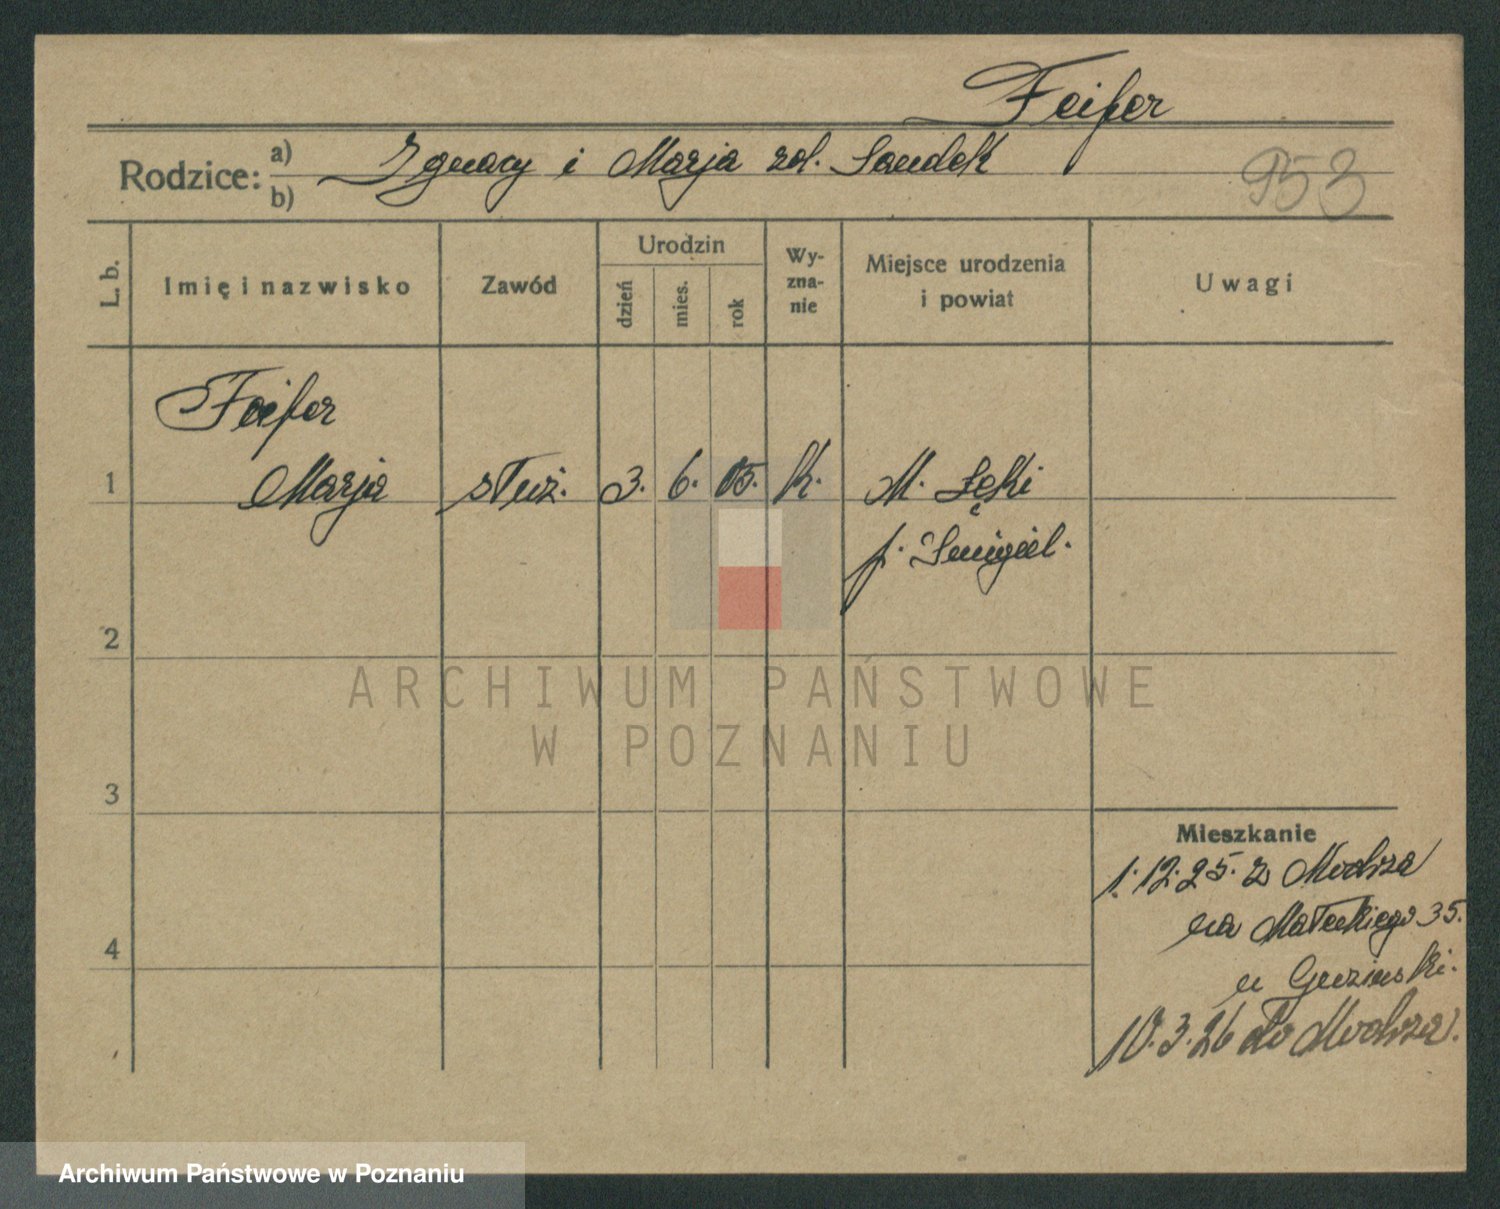 Feifer
Rodzice: a) Ignacy i Marja zol. Sandek
b)
953
L. b.
Imię i nazwisko
Zawód
Urodzin
dzień
mies.
rok
Wy-
zna-
nie
Miejsce urodzenia
i powiat
Uwagi
Feifer
1 Marja służ. 3. 6. 05. k. M. Łęki
p. Śmigiel.
2
3
4
Mieszkanie
1.12.25. z Modrza
na Małeckiego 35.
u
10.3.26 do Modrza.
ARCHIWUM PAŃSTWOWE
W POZNANIU
Archiwum Państwowe w Poznaniu